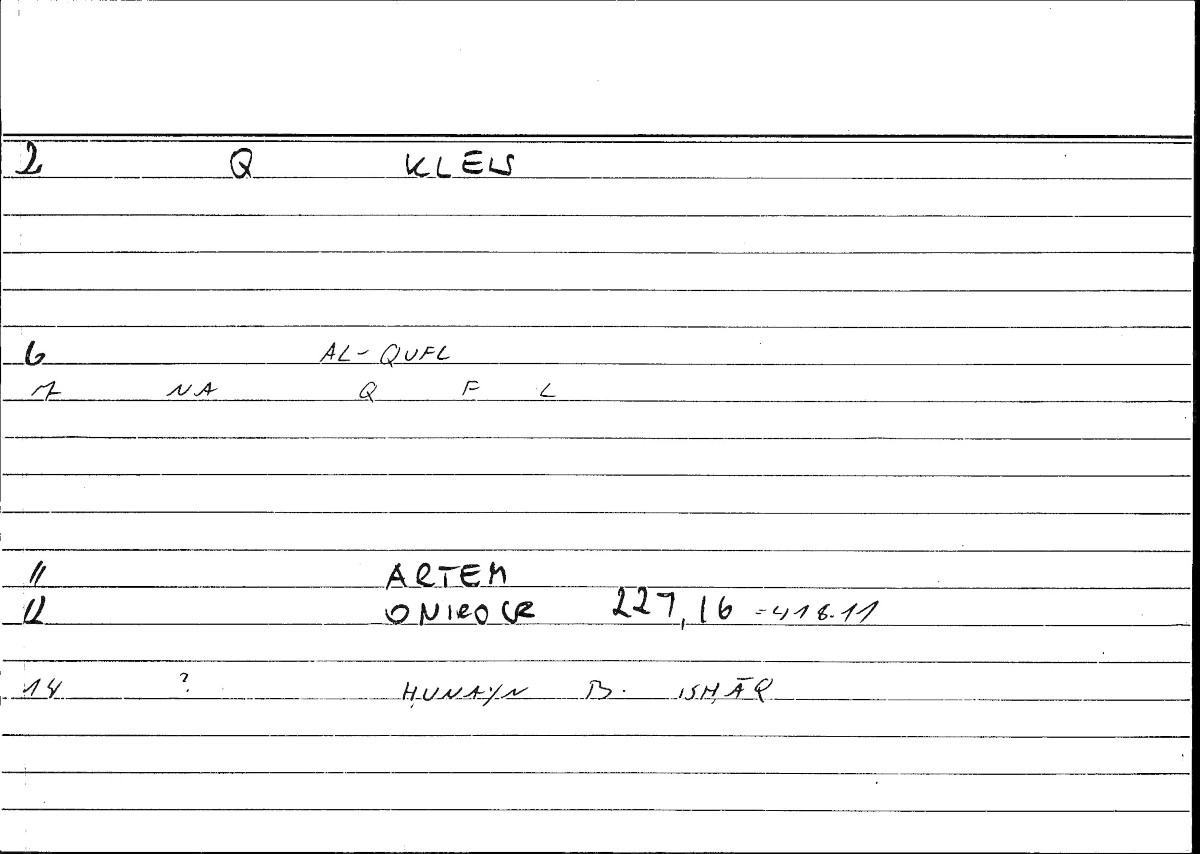 2 Q KLEIS
6 AL-QUFL
7 NA Q F L
11 ARTEM
12 ONIROCR 227,16 =418.11
14 ? ḤUNAYN B. ISḤĀQ